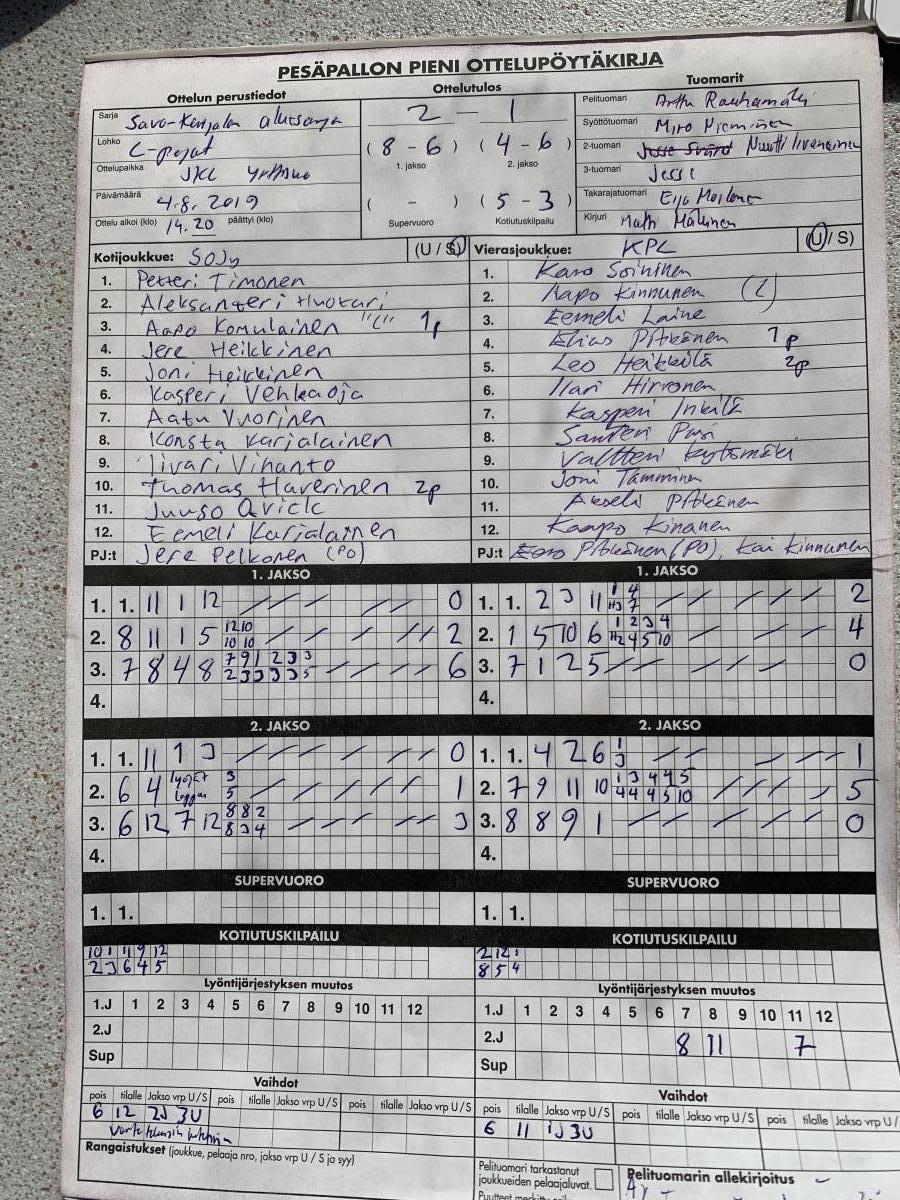 PESÄPALLON PIENI OTTELUPÖYTÄKIRJA
Ottelun perustiedot
Ottelutulos
Tuomarit
Sarja Savo-Karjalan aluesarja
2 - 1
Pelituomari Arttu Rauhamäki
Lohko C-pojat
( 8 - 6 ) ( 4 - 6 )
1. jakso 2. jakso
Syöttötuomari Miro Nieminen
2-tuomari Jesse Svärd Nuutti Iivanainen
Ottelupaikka JKL
3-tuomari Jesse
Päivämäärä 4.8.2019
( - ) ( 5 - 3 )
Supervuoro Kotiutuskilpailu
Takarajatuomari Eija
Ottelu alkoi (klo) 14.20 päättyi (klo)
Kirjuri Matti
Kotijoukkue: SoJy (U / S)
Vierasjoukkue: KPL (U / S)
1. Petteri Timonen
2. Aleksanteri Huotari
3. Aapo Komulainen "L" 1p
4. Jere Heikkinen
5. Joni Heikkinen
6. Kasperi Vehkaoja
7. Aatu Vuorinen
8. Konsta Karjalainen
9. Iivari Vihanto
10. Thuomas Haverinen 2p
11. Juuso Qvick
12. Eemeli Karjalainen
PJ:t Jere Pelkonen (PO)
1. Karo Soininen
2. Aapo Kinnunen (L)
3. Eemeli Laine
4. Elias Pitkänen 1p
5. Leo Heikkilä 2p
6. Ilari Hirvonen
7. Kasperi Inkilä
8. Santeri Pasi
9. Valtteri Kytömäki
10. Joni Tamminen
11. Akseli Pitkänen
12. Kaapo Kinanen
PJ:t Eero Pitkänen (PO), Kai Kinnunen
1. JAKSO
1. 1. 11 1 12 0
2. 8 11 1 5 12 10 2
10 10
3. 7 8 4 8 7 9 1 2 3 3 6
2 3 3 3 3 5
4.
1. JAKSO
1. 1. 2 3 11 1 4 2
H3 7
2. 1 5 10 6 1 2 3 4 4
H2 4 5 10
3. 7 1 2 5 0
4.
2. JAKSO
1. 1. 11 1 3 0
2. 6 4 lyöjät loppu 3 1
5
3. 6 12 7 12 8 8 2 3
8 3 4
4.
2. JAKSO
1. 1. 4 2 6 1 1
3
2. 7 9 11 10 1 3 4 4 5 5
4 4 4 5 10
3. 8 8 9 1 0
4.
SUPERVUORO
1. 1.
SUPERVUORO
1. 1.
KOTIUTUSKILPAILU
10 1 11 9 12
2 3 6 4 5
KOTIUTUSKILPAILU
2 12 1
8 5 4
Lyöntijärjestyksen muutos
1.J 1 2 3 4 5 6 7 8 9 10 11 12
2.J
Sup
Lyöntijärjestyksen muutos
1.J 1 2 3 4 5 6 7 8 9 10 11 12
2.J 8 11 7
Sup
Vaihdot
pois tilalle Jakso vrp U / S pois tilalle Jakso vrp U / S pois tilalle Jakso vrp U / S
6 12 2J 3U
Vaihdot
pois tilalle Jakso vrp U / S pois tilalle Jakso vrp U / S pois tilalle Jakso vrp U /
6 11 1J 3U
Rangaistukset (joukkue, pelaaja nro, jakso vrp U / S ja syy)
Pelituomari tarkastanut
joukkueiden pelaajaluvat.
Pelituomarin allekirjoitus